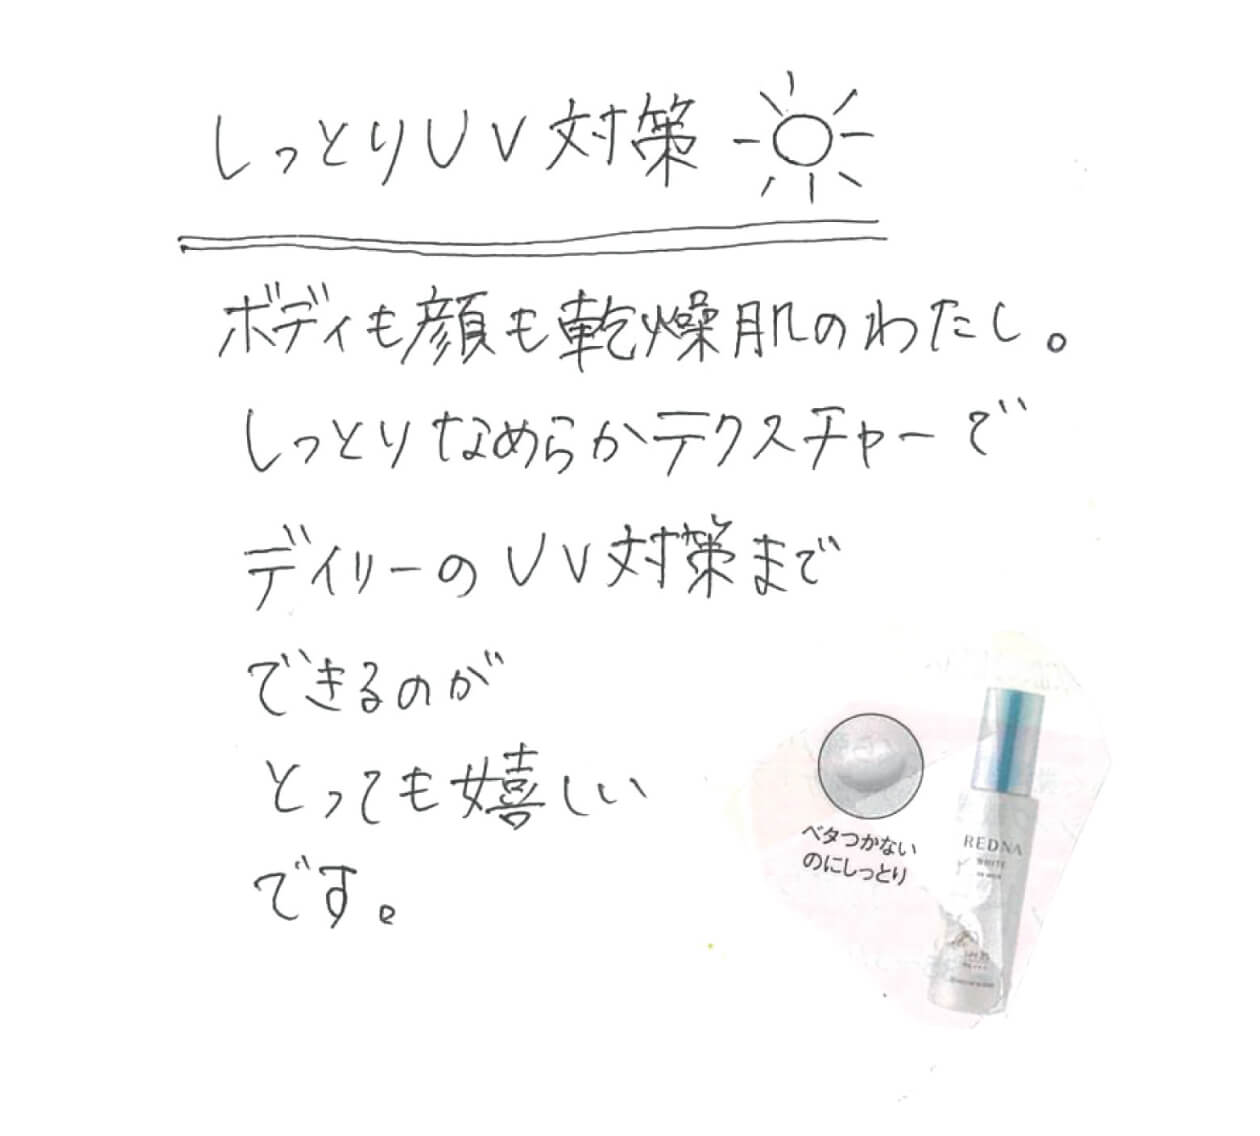 しっとりUV対策
ボディも顔も乾燥肌のわたし。
しっとりなめらかテクスチャーで
デイリーのUV対策まで
できるのが
とっても嬉しい
です。
ベタつかない
のにしっとり
REDNA
WHITE